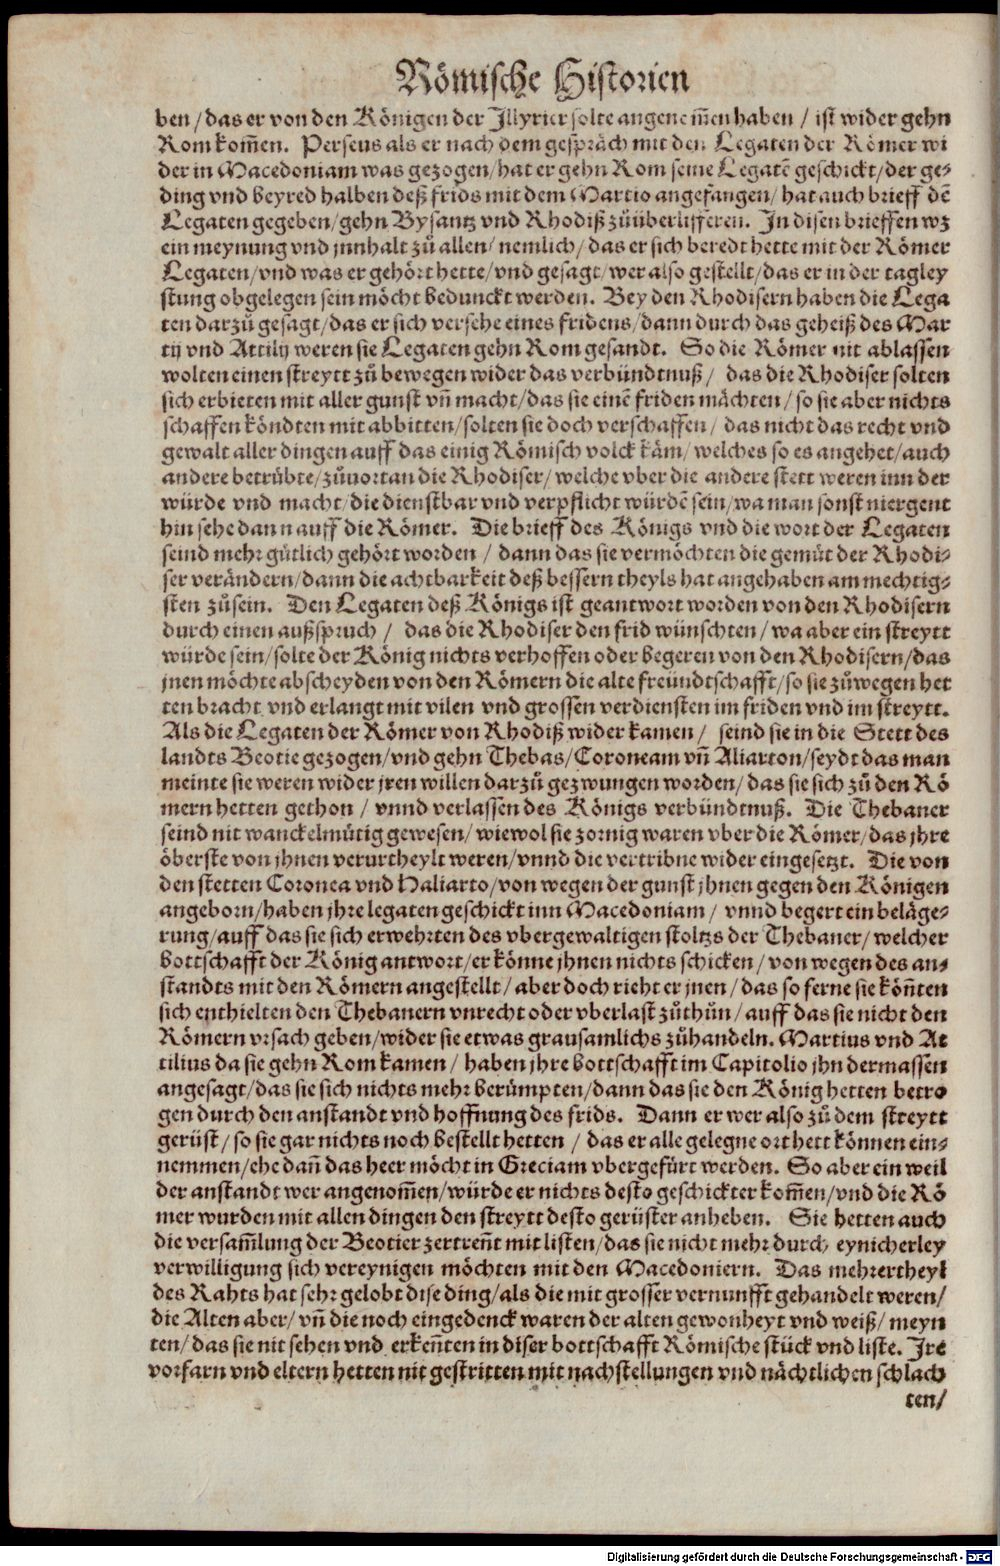 Römische Historien
ben / das er von den Königen der Jllyrier solte angenem̃en haben / ist wider gehn
Rom kom̃en. Perseus als er nach dem gespräch mit den Legaten der Römer wi
der in Macedoniam was gezogen / hat er gehn Rom seine Legatẽ geschickt / der ge⸗
ding vnd beyred halben deß frids mit dem Martio angefangen / hat auch brieff dẽ
Legaten gegeben / gehn Bysantz vnd Rhodiß zůüberlifferen. In disen brieffen wz
ein meynung vnd jnnhalt zů allen / nemlich / das er sich beredt hette mit der Römer
Legaten / vnd was er gehört hette / vnd gesagt / wer also gestellt / das er in der tagley
stung obgelegen sein möcht bedunckt werden. Bey den Rhodisern haben die Lega
ten darzů gesagt / das er sich versehe eines fridens / dann durch das geheiß des Mar
tij vnd Attilij weren sie Legaten gehn Rom gesandt. So die Römer nit ablassen
wolten einen streytt zů bewegen wider das verbündtnuß / das die Rhodiser solten
sich erbieten mit aller gunst vñ macht / das sie einẽ friden mächten / so sie aber nichts
schaffen köndten mit abbitten / solten sie doch verschaffen / das nicht das recht vnd
gewalt aller dingen auff das einig Römisch volck käm / welches so es angehet / auch
andere betrübte / zůuortan die Rhodiser / welche vber die andere stett weren inn der
würde vnd macht / die dienstbar vnd verpflicht würdẽ sein / wa man sonst niergent
hin sehe dann auff die Römer. Die brieff des Königs vnd die wort der Legaten
seind mehr gütlich gehört worden / dann das sie vermöchten die gemüt der Rhodi⸗
ser verändern / dann die achtbarkeit deß bessern theyls hat angehaben am mechtig⸗
sten zůsein. Den Legaten deß Königs ist geantwort worden von den Rhodisern
durch einen außspruch / das die Rhodiser den frid wünschten / wa aber ein streytt
würde sein / solte der König nichts verhoffen oder begeren von den Rhodisern / das
jnen möchte abscheyden von den Römern die alte freündtschafft / so sie zůwegen het
ten bracht vnd erlangt mit vilen vnd grossen verdiensten im friden vnd im streytt.
Als die Legaten der Römer von Rhodiß wider kamen / seind sie in die Stett des
landts Beotie gezogen / vnd gehn Thebas / Coroneam vñ Aliarton / seydt das man
meinte sie weren wider jren willen darzů gezwungen worden / das sie sich zů den Rö
mern hetten gethon / vnnd verlassen des Königs verbündtnuß. Die Thebaner
seind nit wanckelmütig gewesen / wiewol sie zornig waren vber die Römer / das jhre
öberste von jhnen verurtheylt weren / vnnd die vertribne wider eingesetzt. Die von
den stetten Coronea vnd Haliarto / von wegen der gunst jhnen gegen den Königen
angeborn / haben jhre legaten geschickt inn Macedoniam / vnnd begert ein beläge⸗
rung / auff das sie sich erwehrten des vbergewaltigen stoltzs der Thebaner / welcher
bottschafft der König antwort / er könne jhnen nichts schicken / von wegen des an⸗
standts mit den Römern angestellt / aber doch rieht er jnen / das so ferne sie köñten
sich enthielten den Thebanern vnrecht oder vberlast zůthůn / auff das sie nicht den
Römern vrsach geben / wider sie etwas grausamlichs zůhandeln. Martius vnd At
tilius da sie gehn Rom kamen / haben jhre bottschafft im Capitolio jhn dermassen
angesagt / das sie sich nichts mehr berümpten / dann das sie den König hetten betro
gen durch den anstandt vnd hoffnung des frids. Dann er wer also zů dem streytt
gerüst / so sie gar nichts noch bestellt hetten / das er alle gelegne ort hett können ein⸗
nemmen / ehe dañ das heer möcht in Greciam vbergefürt werden. So aber ein weil
der anstandt wer angenom̃en / würde er nichts desto geschickter kom̃en / vnd die Rö
mer wurden mit allen dingen den streytt desto gerüster anheben. Sie hetten auch
die versam̃lung der Beotier zertreñt mit listen / das sie nicht mehr durch eynicherley
verwilligung sich vereynigen möchten mit den Macedoniern. Das mehrertheyl
des Rahts hat sehr gelobt dise ding / als die mit grosser vernunfft gehandelt weren /
die Alten aber / vñ die noch eingedenck waren der alten gewonheyt vnd weiß / meyn
ten / das sie nit sehen vnd erkeñten in diser bottschafft Römische stück vnd liste. Jre
vorfarn vnd eltern hetten nit gestritten mit nachstellungen vnd nächtlichen schlach
ten /
Digitalisierung gefördert durch die Deutsche Forschungsgemeinschaft - DFG